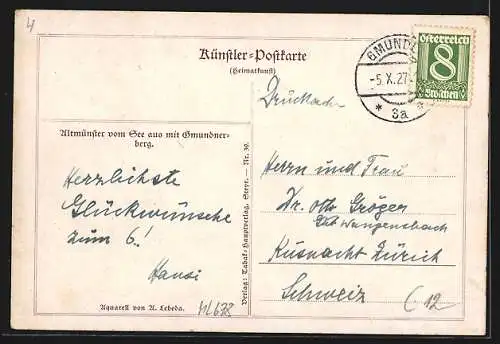 4
Künstler-Postkarte
(Heimatkunst)
GMUNDEN
-5.X.27
* 3a *
Österreich
8
Groschen
Drucksache
Altmünster vom See aus mit Gmundner-
berg.
Herzlichste
Glückwünsche
zum 6!
Hansi
Aquarell von A. Lebeda.
Verlag: Tabak-Hauptverlag, Steyr. — Nr. 39.
Herrn und Frau
Dr. Otto Gröger
Küsnacht Zürich
Schweiz
(12